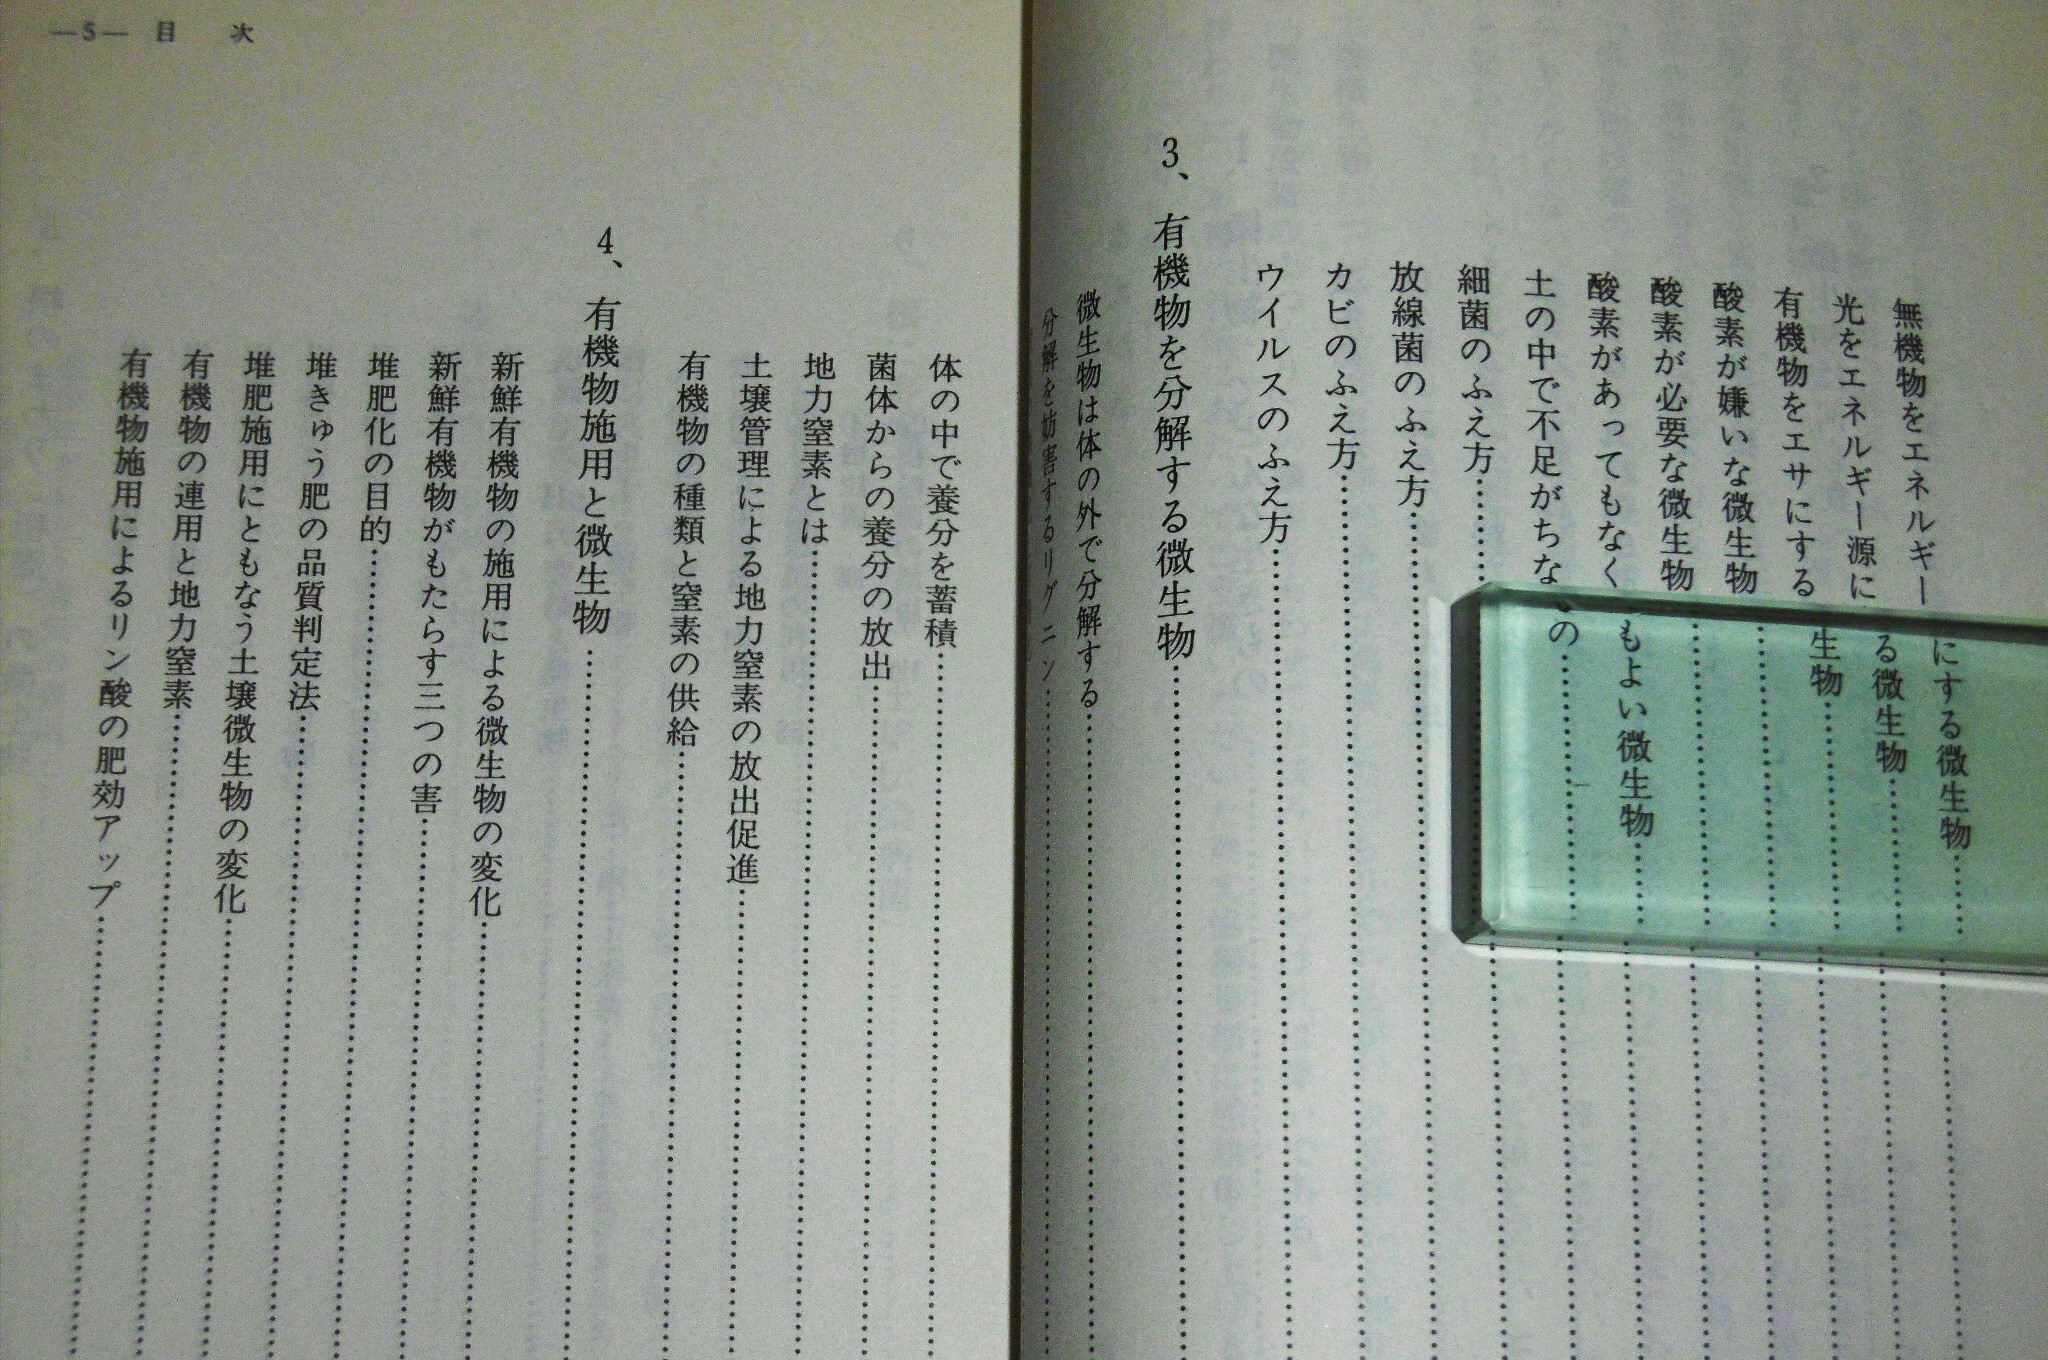 無機物をエネルギーにする微生物
光をエネルギー源にする微生物
有機物をエサにする生物
酸素が嫌いな微生物
酸素が必要な微生物
酸素があってもなくもよい微生物
土の中で不足がちなの
細菌のふえ方
放線菌のふえ方
カビのふえ方
ウイルスのふえ方
3、有機物を分解する微生物
微生物は体の外で分解する
分解を妨害するリグニン
—5— 目 次
体の中で養分を蓄積
菌体からの養分の放出
地力窒素とは
土壌管理による地力窒素の放出促進
有機物の種類と窒素の供給
4、有機物施用と微生物
新鮮有機物の施用による微生物の変化
新鮮有機物がもたらす三つの害
堆肥化の目的
堆きゅう肥の品質判定法
堆肥施用にともなう土壌微生物の変化
有機物の連用と地力窒素
有機物施用によるリン酸の肥効アップ